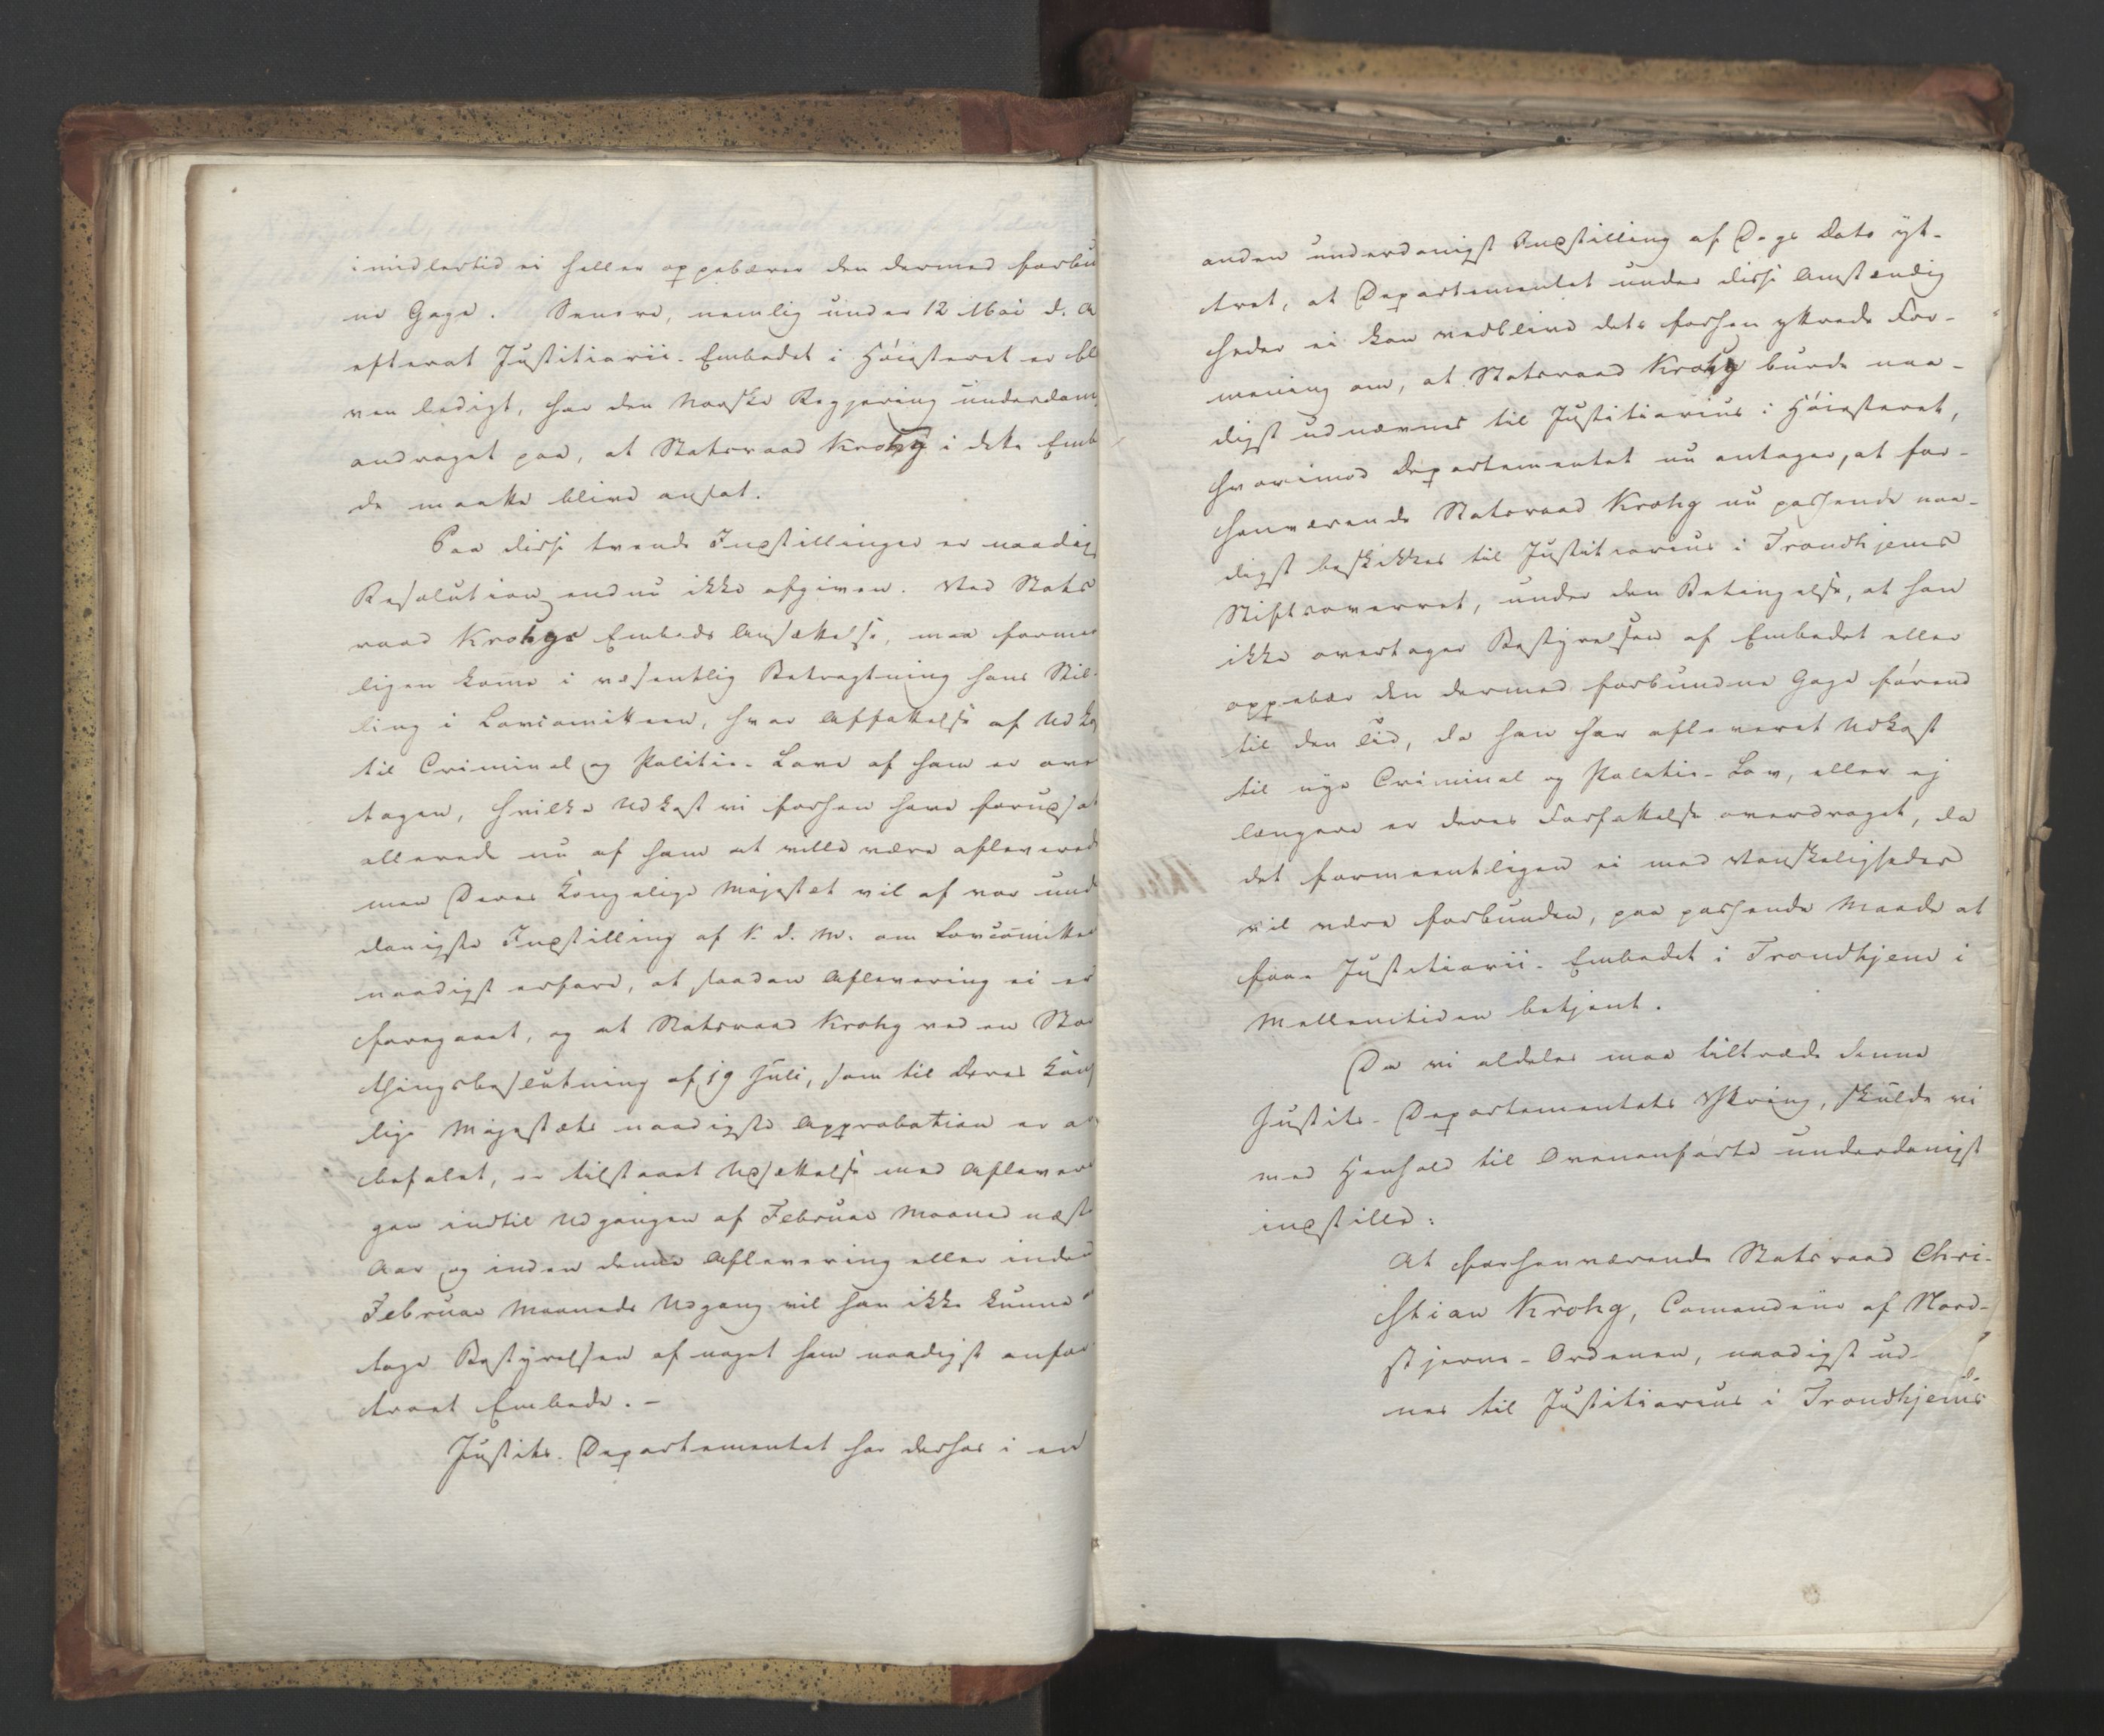 imidlertid ei heller oppebærer den dermed forbu
ne Gage. Senere, nemlig under 12 Mai d. A
efterat Justitiarii-Embedet i Høiesteret er ble
ven ledigt, har den Norske Regjering underdan
andraget paa, at Statsraad Krohg i dette Emb
de maatte blive ansat.
Paa disse tvende Indstillinger er naadig
Resolution endnu ikke afgiven. Ved Stats
raad Krohgs Embeds Ansættelse, maa formee
ligen kom̄e i væsentlig Betragtning hans Stil-
ling i Lovcomitteen, hvor Affattelse af Udka
til Criminal og Politie-Love af ham er over
tagen, hvilke Udkast vi forhen have forudsat
allerede nu af ham at ville være afleverede
men Deres Kongelige Majestæt vil af vor und
danigste Indstilling af S. D. om Lovcom̄itte
naadigst erfare, at saadan Aflevering ei er
foregaaet, og at Statsraad Krohg ved en Stor
thingsbeslutning af 19 Juli, som til Deres Kong
lige Majestæts naadigste Approbation er an
befalet, er tilstaaet Udsættelse med Aflever
gen indtil Udgangen af Februar Maaned næste
Aar og inden denne Aflevering eller inden
Februar Maaneds Udgang vil han ikke kunne
tage Bestyrelsen af noget ham naadigst anfor
troet Embede. -
Justits-Departementet har derhos i en
anden underdanigst Indstilling af Dags Dato yt-
tret, at Departementet under disse Omstændig
heder ei kan vedblive dets forhen yttrede For-
mening om, at Statsraad Krohg burde naa-
digst udnævnes til Justitiarius i Høiesteret,
hvorimod Departementet nu antager, at for-
henværende Statsraad Krohg nu passende naa-
digst beskikkes til Justitiarius i Trondhjems
Stiftsoverret, under den Betingelse, at han
ikke overtager Bestyrelsen af Embedet eller
oppebær den dermed forbundne Gage førend
til den Tid, da han har afleveret Udkast
til nye Criminal og Politie-Lov, eller ej
længere er deres Forfattelse overdraget, da
det formeentligen ei med Vanskeligheder
vil være forbunden, paa passende Maade at
faae Justitiarii-Embedet i Trondhjem i
Mellemtiden betjent.
Da vi aldeles maa tiltræde denne
Justits-Departementets Yttring, skulde vi
med Henhold til Ovenanførte underdanigst
indstille:
At forhenværende Statsraad Chri-
stian Krohg, Com̄andeur af Nord-
stjerne-Ordenen, naadigst ud-
nes til Justitiarius i Trondhjems